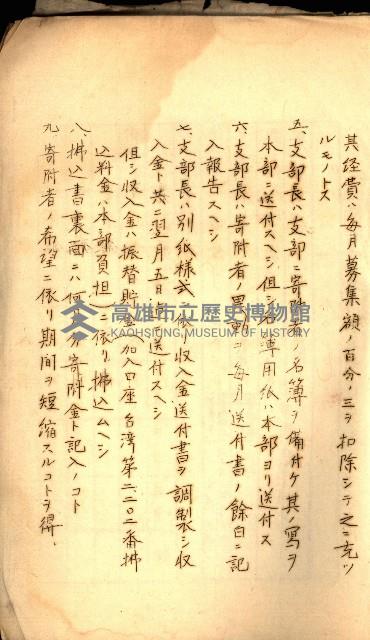 其経費ハ毎月募集額ノ百分ノ三ヲ扣除シテ之ニ充ツ
ルモノトス
五、支部長ハ支部ニ寄附者ノ名簿ヲ備付ケ其ノ寫ヲ
本部ニ送付スヘシ但シ名簿用紙ハ本部ヨリ送付ス
六、支部長ハ寄附者ノ異動ヲ毎月送付書ノ餘白ニ記
入報告スヘシ
七、支部長ハ別紙様式ニ依リ収入金送付書ヲ調製シ収
入金ト共ニ翌月五日迄ニ送付スヘシ
但シ収入金ハ振替貯金加入口座台湾第二二〇二番拂
込料金ハ本部負担ニ依リ拂込ムヘシ
八、拂込書裏面ニハ何月分寄附金ト記入ノコト
九、寄附者ノ希望ニ依リ期間ヲ短縮スルコトヲ得、
高雄市立歷史博物館
KAOHSIUNG MUSEUM OF HISTORY